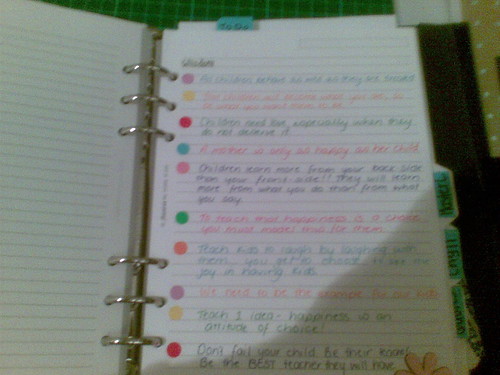 TO DO
Wisdom
All children behave as well as they are treated
The children will become what you are, so
be what you want them to be
Children need love, especially when they
do not deserve it
A mother is only as happy as her child
Children learn more from your back side
than your front-side!! They will learn
more from what you do than from what
you say.
To teach that happiness is a choice
you must model this for them
Teach kids to laugh by laughing with
them you get to choose to see the
joy in having kids
We need to be the example for our kids
Teach 1 idea - happiness is an
attitude of choice!
Don't fail your child. Be their teacher
Be the BEST teacher they will have